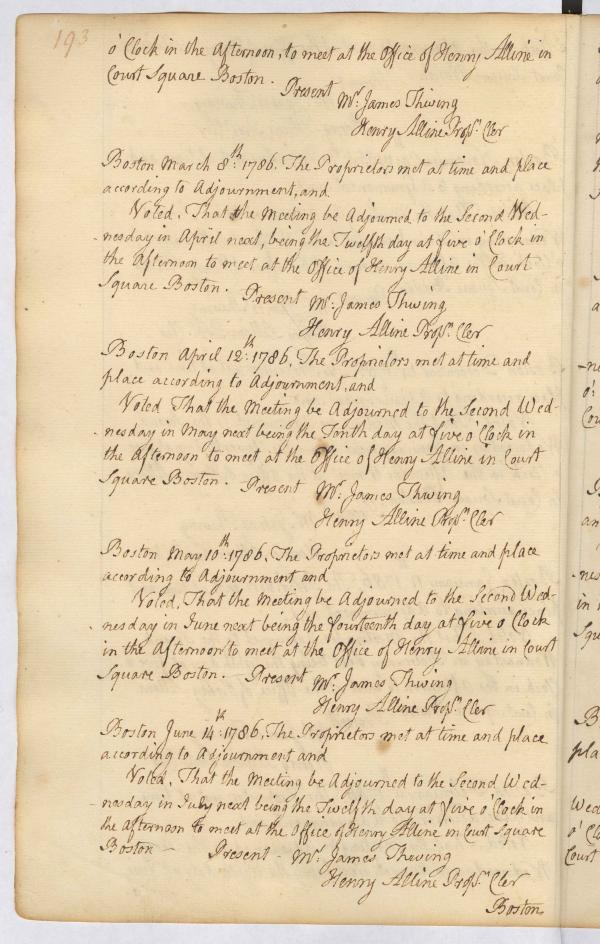 193
o'Clock in the Afternoon, to meet at the Office of Henry Alline in
Court Square Boston.
Present
Mr. James Thwing
Henry Alline Props. Cler
Boston March 8th: 1786. The Proprietors met at time and place
according to Adjournment, and
Voted, That the Meeting be Adjourned to the Second Wed-
nesday in April next, being the Twelfth day at five o'Clock in
the Afternoon to meet at the Office of Henry Alline in Court
Square Boston.
Present Mr. James Thwing
Henry Alline Props. Cler
Boston April 12th: 1786, The Proprietors met at time and
place according to Adjournment, and
Voted That the Meeting be Adjourned to the Second Wed-
nesday in May next being the Tenth day at five o'Clock in
the Afternoon to meet at the Office of Henry Alline in Court
Square Boston. Present Mr. James Thwing
Henry Alline Props. Cler
Boston May 10th: 1786, The Proprietors met at time and place
according to Adjournment and
Voted, That the Meeting be Adjourned to the Second Wed-
nesday in June next being the fourteenth day at five o'Clock
in the Afternoon to meet at the Office of Henry Alline in Court
Square Boston. Present Mr. James Thwing
Henry Alline Props. Cler
Boston June 14th: 1786, The Proprietors met at time and place
according to Adjournment and
Voted, That the Meeting be Adjourned to the Second Wed-
nesday in July next being the Twelfth day at five o'Clock in
the Afternoon to meet at the Office of Henry Alline in Court Square
Boston - Present - Mr. James Thwing
Henry Alline Props. Cler
Boston